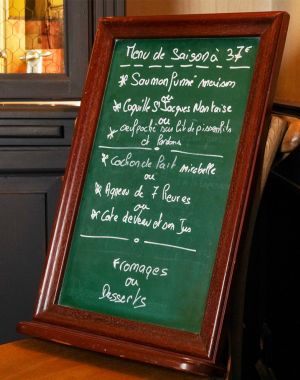 Menu de Saison à 37€
* Saumon fumé maison
ou
* Coquille St Jacques Nantaise
ou
* oeuf poché sur lit de pissenlits
et lardons
* Cochon de lait mirabelle
ou
* Agneau de 7 Heures
ou
* Cote de veau et son Jus
Fromages
ou
Desserts